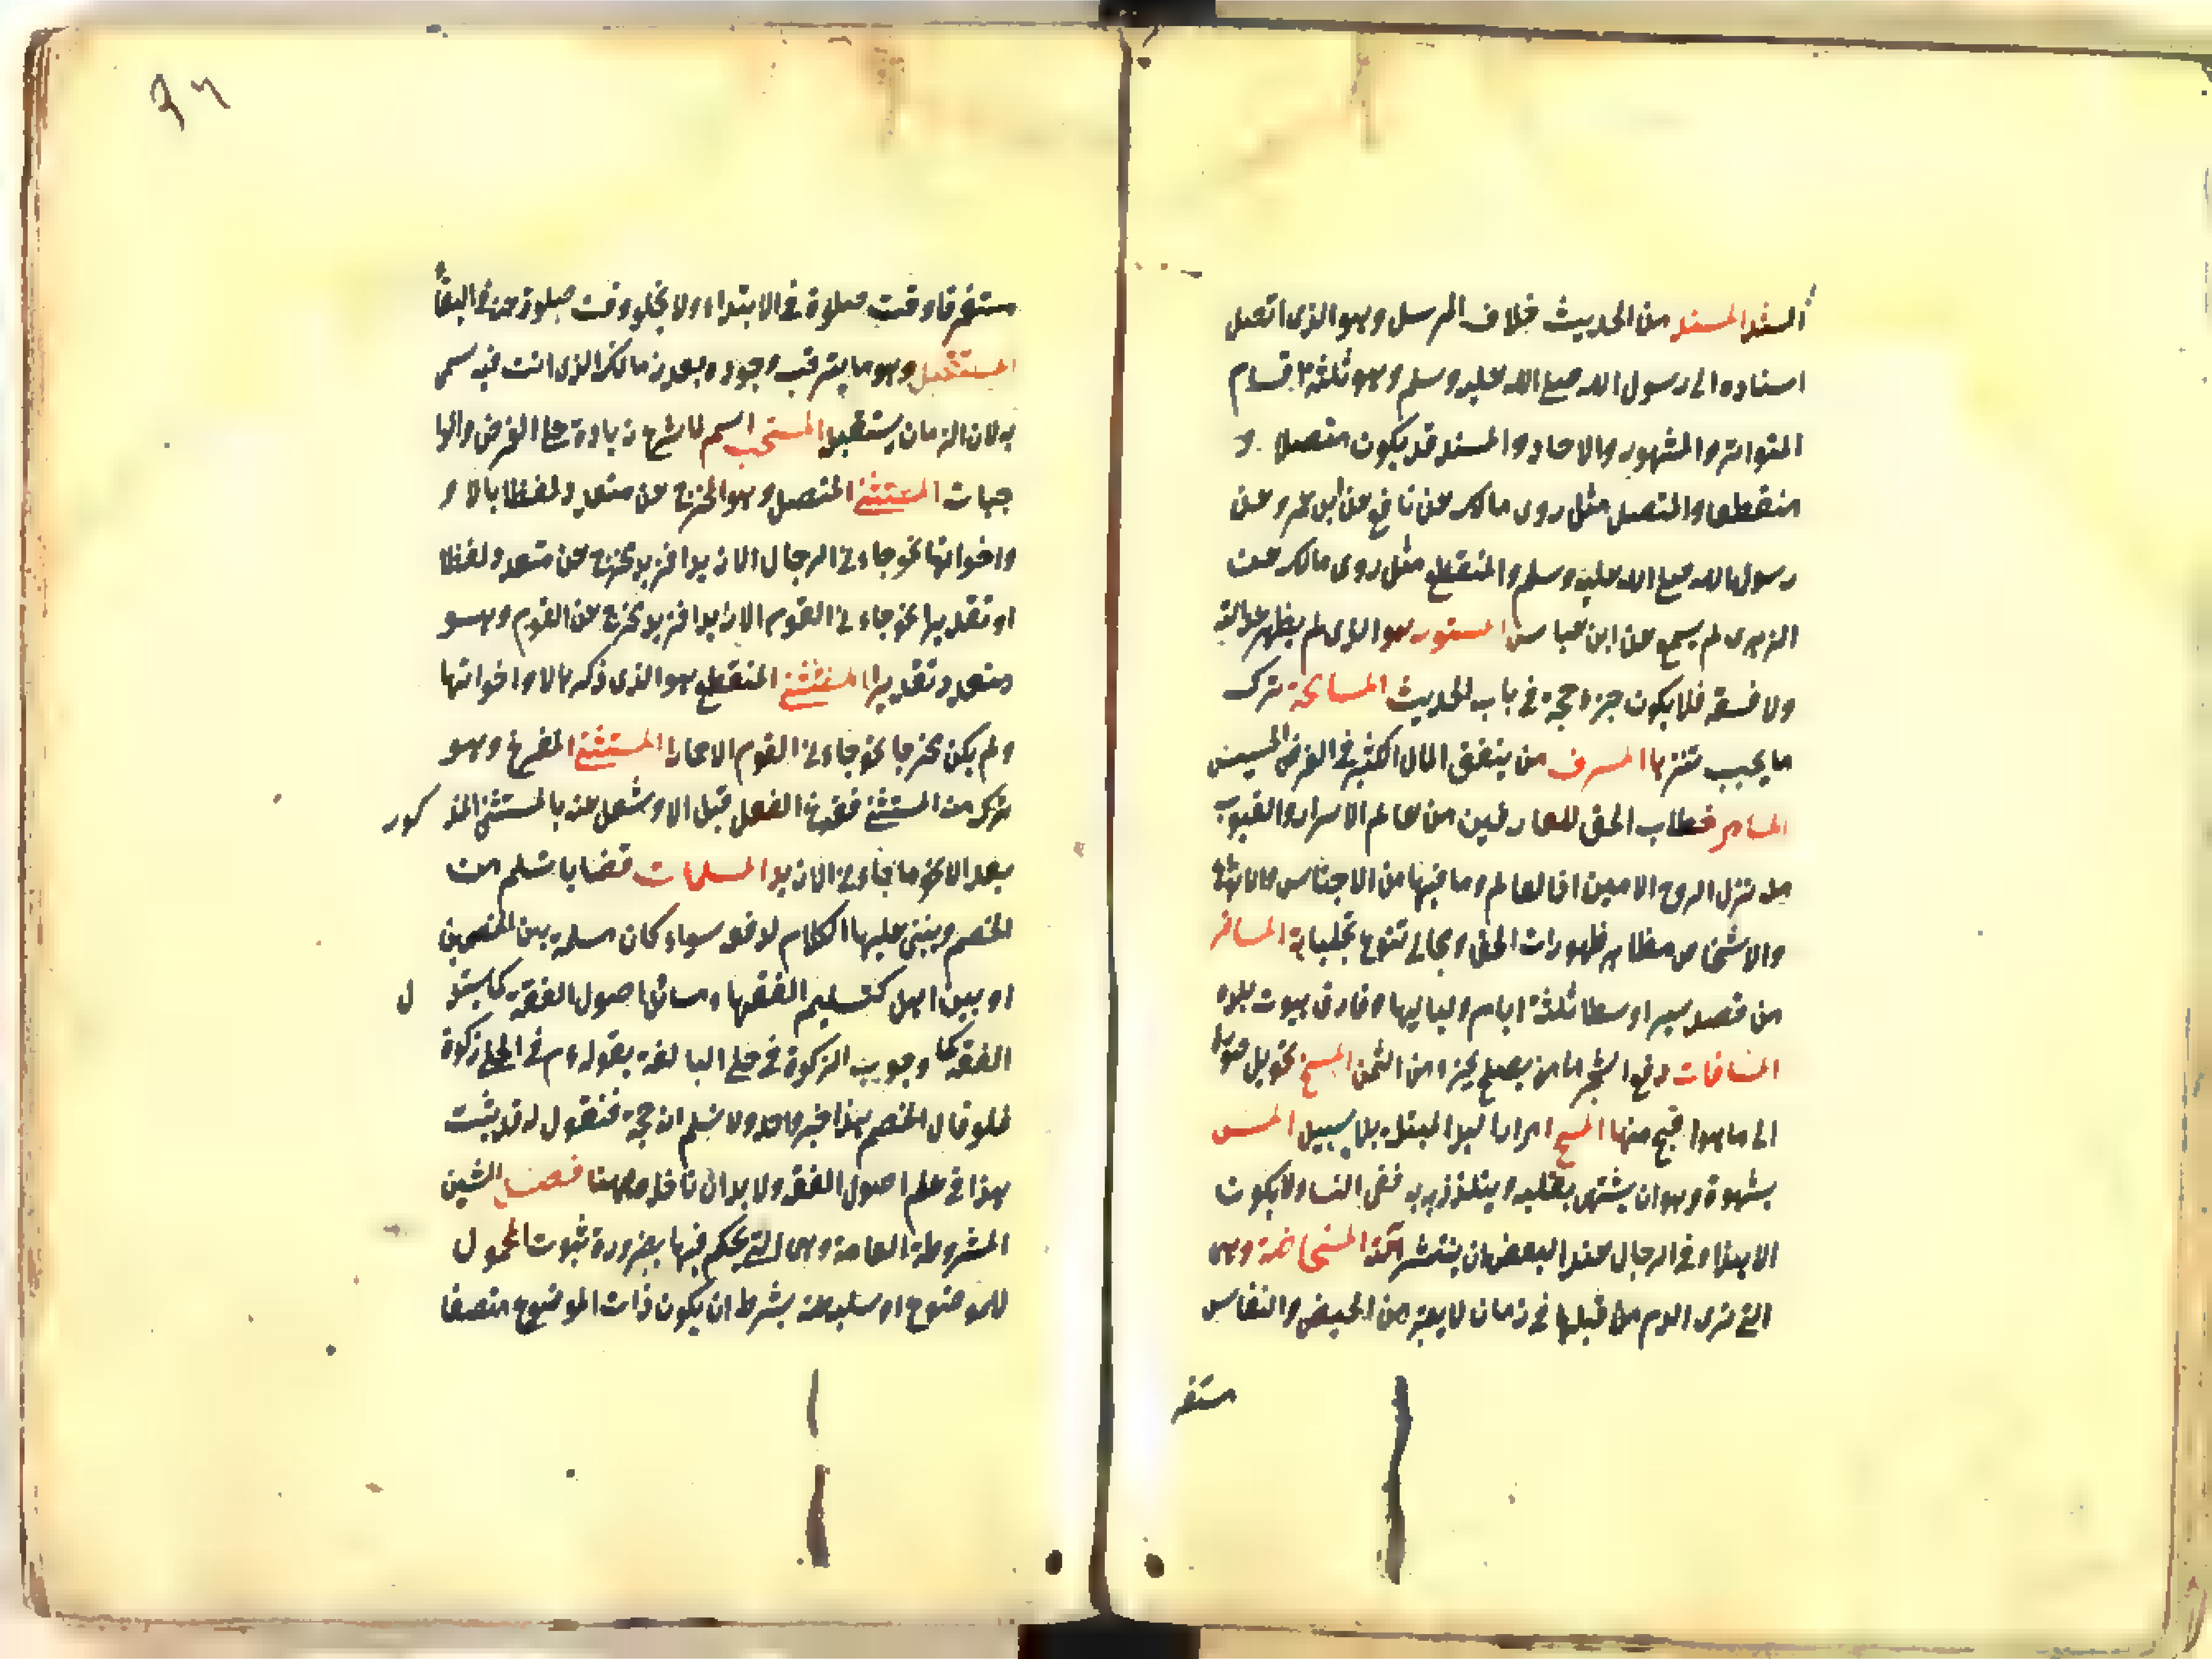 السند المسند من الحديث خلاف المرسل وهو الذى اتصل
اسناده الى رسول الله صلى الله عليه وسلم وهو ثلثة اقسام
المتواتر والمشهور والاحاد والمسند قد يكون متصلا و
منقطعا والمتصل مثل روى مالك عن نافع عن ابن عمر وعن
رسول الله صلى الله عليه وسلم والمنقطع مثل روى مالك عن
الزهرى لم يسمع عن ابن عباس المستور هو الذى لم يظهر عدالته
ولا فسقه فلا يكون خبره حجة فى باب الحديث المسامحة ترك
ما يجب تنزها المسرف من ينفق المال الكثير فى الغرض الخسيس
المسامر خطاب الحق للعارفين من عالم الاسرار والغيوب
منه نزل الروح الامين اذ العالم وما فيها من الاجناس والانواع
والاشخاص مظاهر ظهورات الحق ومجالى تنوع تجلياته المسافر
من قصد سيرا وسطا ثلثة ايام ولياليها وفارق بيوت بلده
المساقات دفع الشجر الى من يصلحه بجزء من الثمن المسخ تحويل صورة
الى ما هو اقبح منها المسح امرار اليد المبتلة بلا تسييل المس
بشهوة وهو ان يشتهى بقلبه ويتلذذ به ففى النساء لا يكون
الا هذا وفى الرجال عند البعض ان ينتشر آلته المستحاضة وهى
التى ترى الدم من قبلها فى زمان لا يعتبر من الحيض والنفاس
مستغر
٩٦
مستغرقا وقت صلوة فى الابتداء ولا يخلو وقت صلوة عنه فى البقاء
المستقبل وهو ما يترقب وجوده بعد زمانك الذى انت فيه سمى
به لان الزمان يستقبله المستحب اسم لما شرع زيادة على الفرض والوا
جبات المستثنى المتصل وهو المخرج عن متعدد لفظا بالا و
واخواتها نحو جاءنى الرجال الا زيدا فزيد مخرج عن متعدد لفظا
او تقديرا نحو جاءنى القوم الا زيدا فزيد مخرج عن القوم وهو
متعدد تقديرا المستثنى المنقطع هو الذى ذكر بالا واخواتها
ولم يكن مخرجا نحو جاءنى القوم الا حمارا المستثنى المفرغ وهو
ترك منه المستثنى ففرغ الفعل قبل الا وشغل عنه بالمستثنى المذكور
بعد الا نحو ما جاءنى الا زيد المسلمات قضايا تسلم من
الخصم ويبنى عليها الكلام لدفعه سواء كان مسلمة بين الخصمين
او بين اهل كتسليم الفقهاء مسائل اصول الفقه كما يستدل
الفقه كما وجوب الزكوة فى حلى البالغة بقوله عم فى الحلى زكوة
فلو قال الخصم هذا خبر واحد ولا نسلم انه حجة فنقول له قد ثبت
هذا فى علم اصول الفقه ولا بد ان نأخذه ههنا فصل الشين
المشروطة العامة وهى التى يحكم فيها بضرورة ثبوت المحمول
للموضوع او سلبه عنه بشرط ان يكون ذات الموضوع متصفا